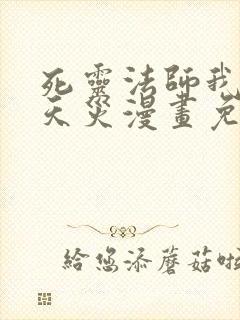 死靈法師我
天災漫畫免
給您添蘑菇啦